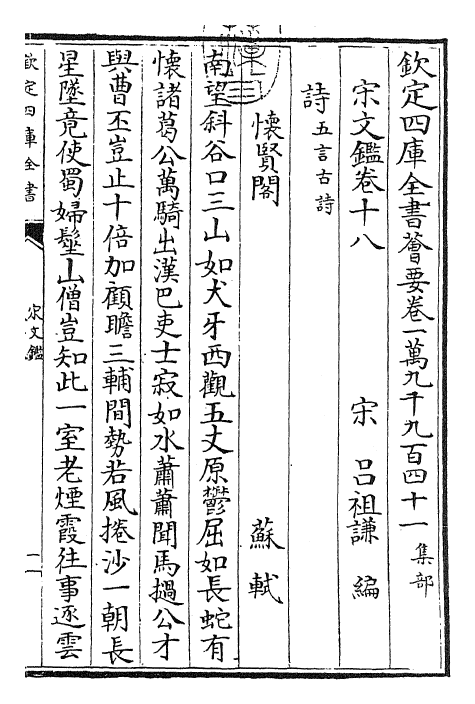 欽定四庫全書薈要卷一萬九千九百四十一 集部
宋文鑑卷十八
宋 吕祖謙 編
詩五言古詩
懷賢閣 蘇軾
南望斜谷口三山如犬牙西觀五丈原鬱屈如長蛇有
懷諸葛公萬騎出漢巴吏士寂如水蕭蕭聞馬撾公才
與曹丕豈止十倍加顧瞻三輔間勢若風捲沙一朝長
星墜竟使蜀婦髽山僧豈知此一室老煙霞往事逐雲
欽定四庫全書
宋文鑑